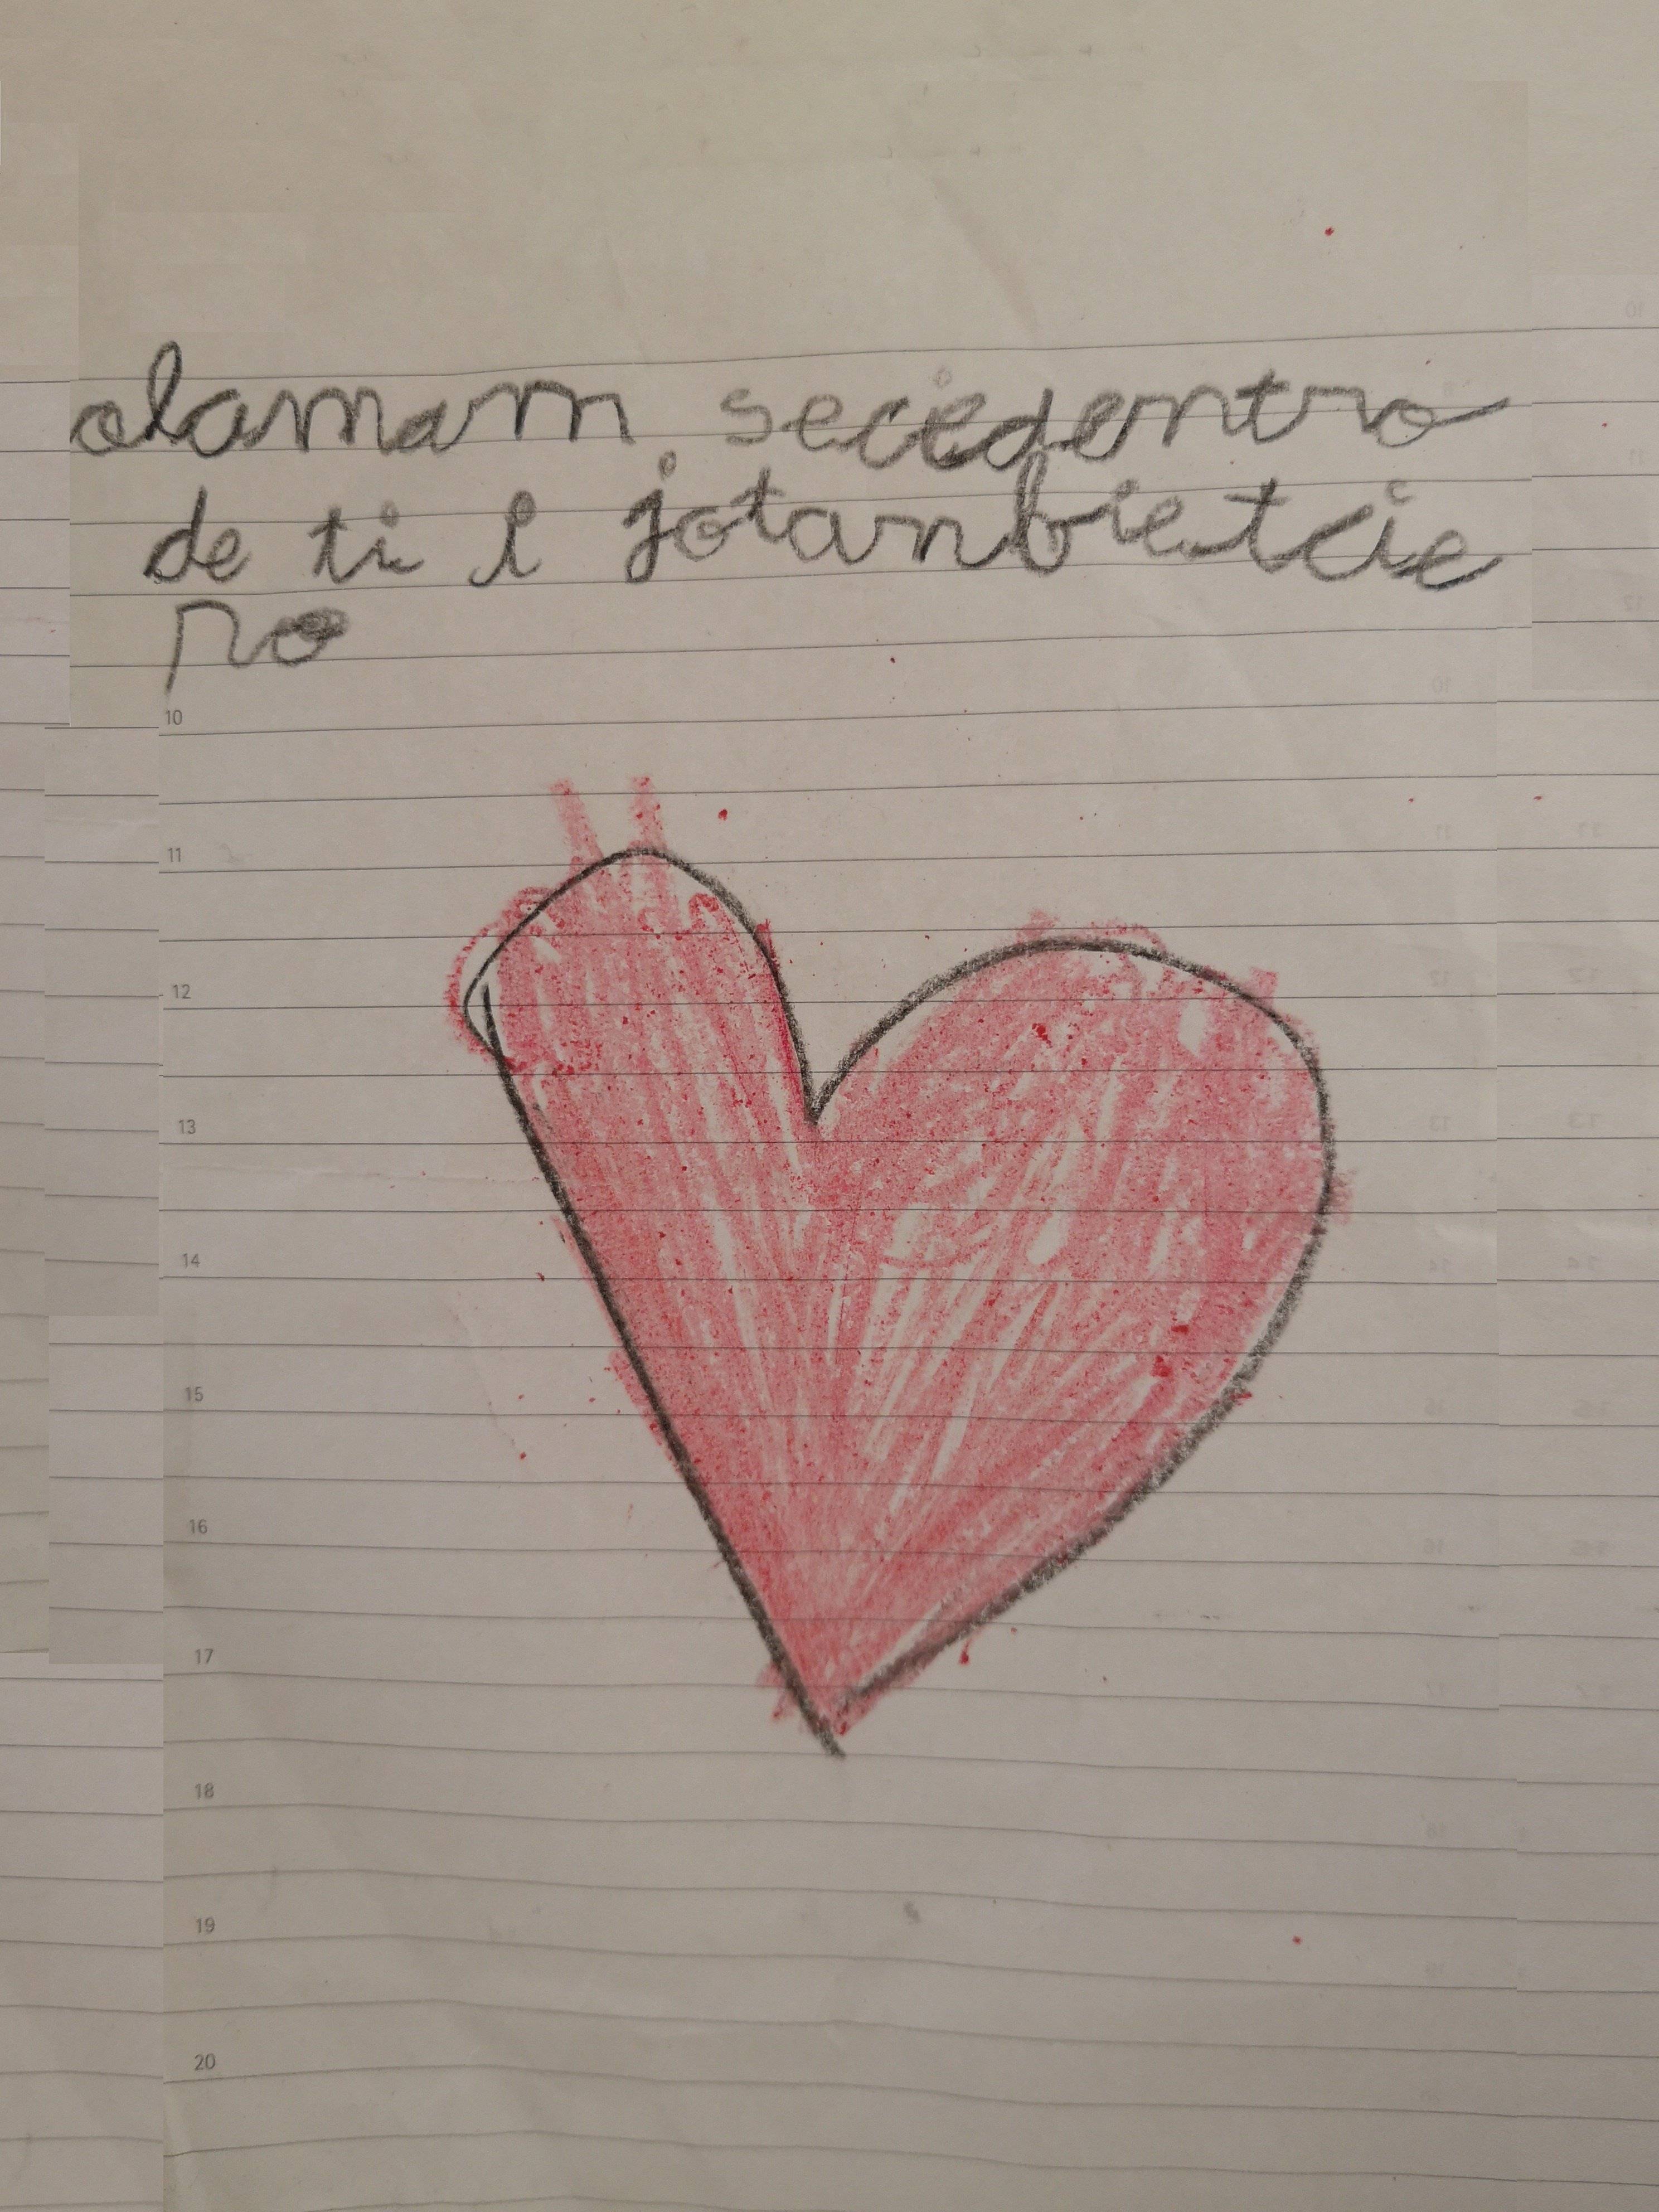 olamam secedentro
de ti i jotanbietcie
ro
10
11
12
13
14
15
16
17
18
19
20